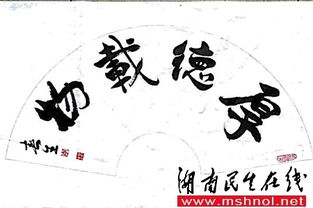 厚德載物
湖南民生在线
www.mshnol.net